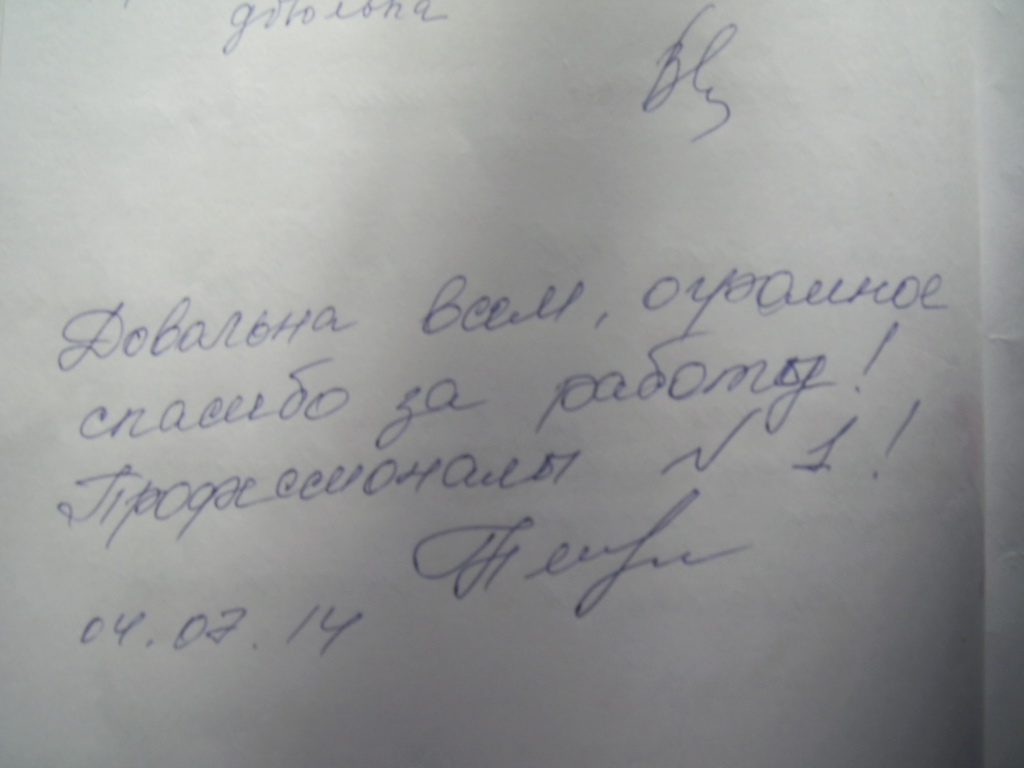 Довольна всем, огромное
спасибо за работу!
Профессионалы N 1!
04.07.14